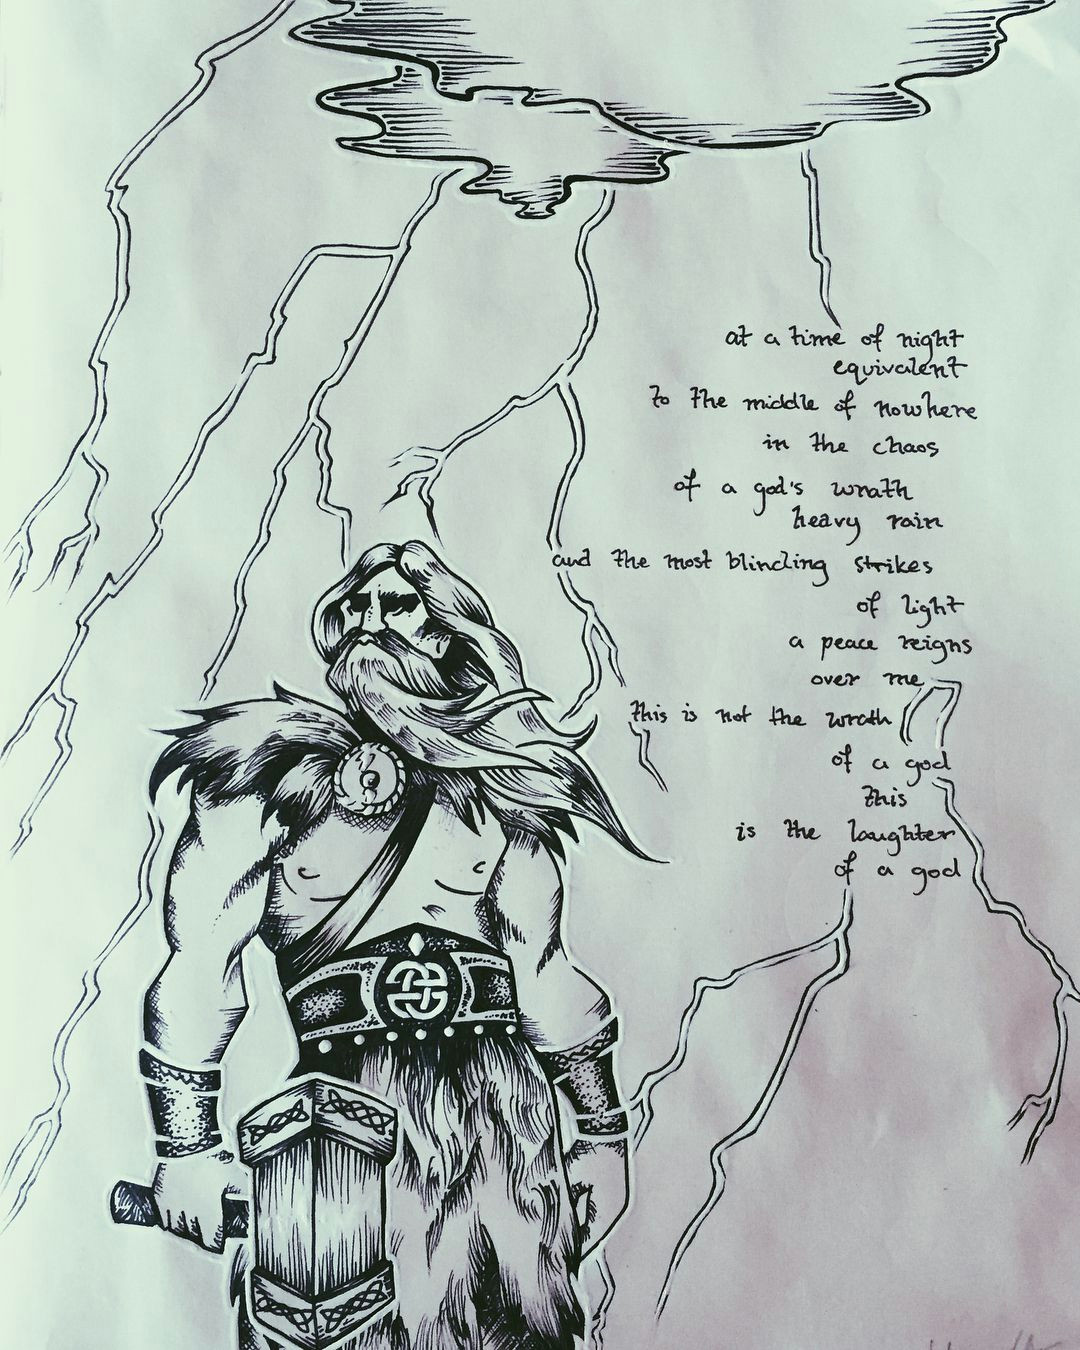 at a time of night
equivalent
to the middle of nowhere
in the chaos
of a god's wrath
heavy rain
and the most blinding strikes
of light
a peace reigns
over me
this is not the wrath
of a god
this
is the laughter
of a god